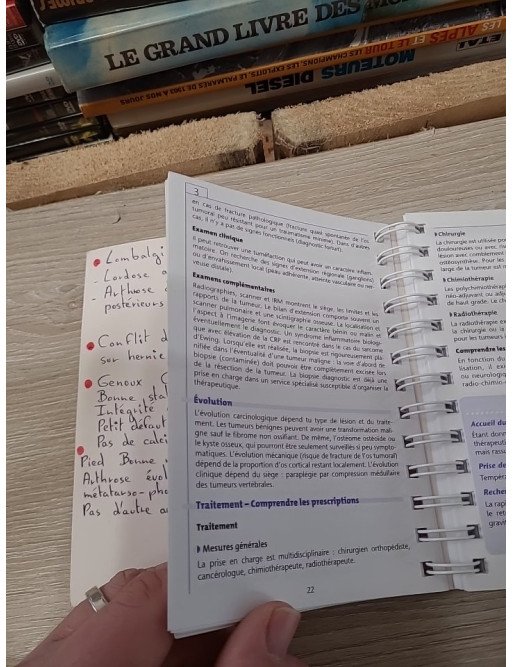 LE GRAND LIVRE DES
LES ALPES ET LE TOUR
LES CHAMPIONS, LES EXPLOITS, LE PALMARÈS DE 1903 À NOS JOURS
ETAI
MOTEURS DIESEL
Lombalgi
- Lordose
- Arthrose
postérieurs
Conflit d
sur hernie
Genoux
Bonne sta
Intégrité
Petit défaut
Pas de calci
Pied Bonne
Arthrose évol
métatarso-pho
Pas d'autre a
3
en cas de fracture pathologique (fracture quasi spontanée de l'os
tumoral peu résistant pour un traumatisme minime). Dans d'autres
cas, il n'y a pas de signes fonctionnels (diagnostic fortuit).
Examen clinique
Il peut retrouver une tuméfaction qui peut avoir un caractère inflam-
matoire. On recherche des signes d'extension régionale (ganglions)
ou d'envahissement local (peau adhérente, atteinte vasculaire ou ner-
veuse distale).
Examens complémentaires
Radiographies, scanner et IRM montrent le siège, les limites et les
rapports de la tumeur. Le bilan d'extension comporte souvent un
scanner pulmonaire et une scintigraphie osseuse. La localisation et
l'aspect à l'imagerie font évoquer le caractère bénin ou malin et
éventuellement le diagnostic. Un syndrome inflammatoire biologi-
que avec élévation de la CRP est rencontré dans le cas du sarcome
d'Ewing. Lorsqu'elle est réalisée, la biopsie est rigoureusement pla-
nifiée dans l'éventualité d'une tumeur maligne : la voie d'abord de
biopsie (contaminée) doit pouvoir être complètement excisée lors
de la résection de la tumeur. La biopsie diagnostic est déjà une
prise en charge dans un service spécialisé susceptible d'organiser la
thérapeutique.
Évolution
L'évolution carcinologique dépend du type de lésion et du traite-
ment. Les tumeurs bénignes peuvent avoir une transformation mali-
gne sauf le fibrome non ossifiant. De même, l'ostéome ostéoïde ou
le kyste osseux, qui pourront être seulement surveillés si peu sympto-
matiques. L'évolution mécanique (risque de fracture de l'os tumoral)
dépend de la proportion d'os cortical restant localement. L'évolution
clinique dépend du siège : paraplégie par compression médullaire
des tumeurs vertébrales.
Traitement – Comprendre les prescriptions
Traitement
Mesures générales
La prise en charge est multidisciplinaire : chirurgien orthopédiste,
cancérologue, chimiothérapeute, radiothérapeute.
22
Chirurgie
La chirurgie est utilisée po
douloureuses ou avec
lésion avec comblement
ostéosynthèse. Pour les
large de la tumeur est
Chimiothérapie
Les polychimiothérap
néo-adjuvant ou adj
de haut grade. Le ch
Radiothérapie
La radiothérapie e
la chirurgie ou la
pour les tumeurs
Comprendre les
En fonction du
lisation, il ex
ou neurologiq
radio-chimio-
Accueil du
Étant donn
thérapeuti
mais rassu
Prise de
Tempéra
Recher
La rap
le ret
gravit